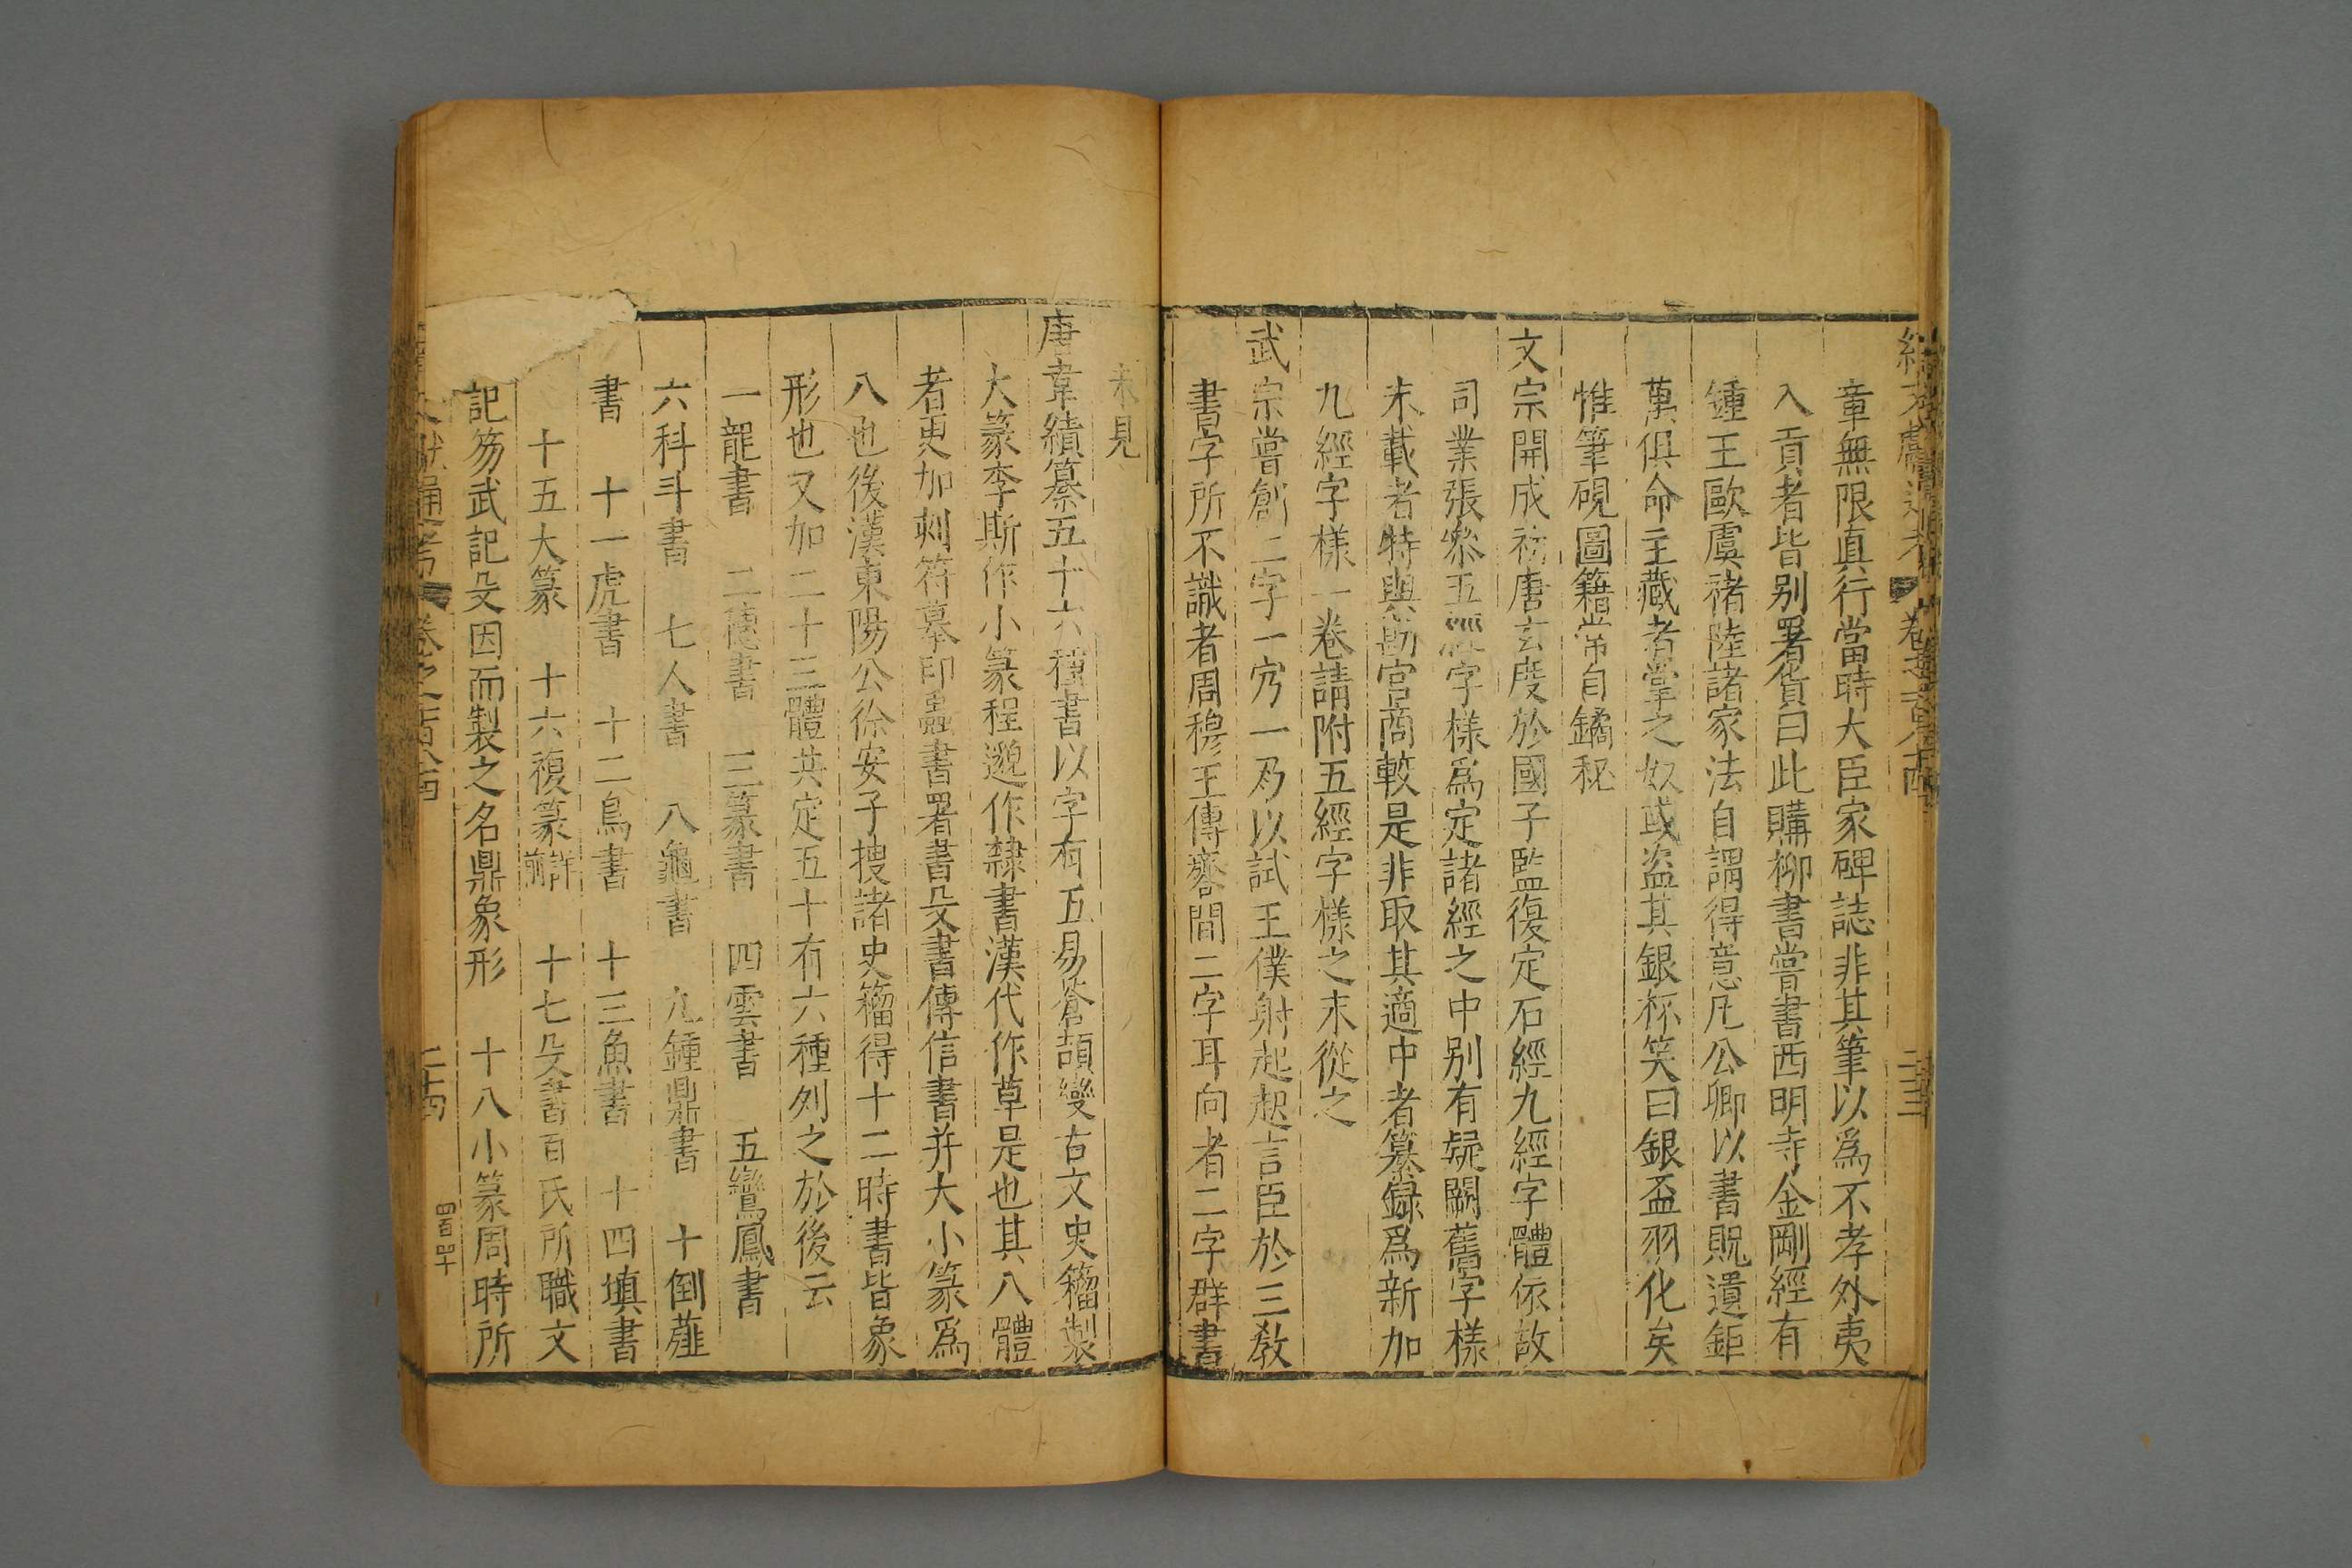 章無限真行當時大臣家碑誌非其筆以爲不孝外夷
入貢者皆别署貨曰此購柳書嘗書西明寺金剛經有
鍾王歐虞禇陸諸家法自謂得意凡公卿以書貺遺鉅
萬俱命主藏者掌之奴或盜其銀杯笑曰銀盃羽化矣
惟筆硯圖籍常自鐍秘
文宗開成初唐玄度於國子監復定石經九經字體依故
司業張參五經字樣爲定諸經之中别有疑闕舊字樣
未載者特與勘官商較是非取其適中者纂録爲新加
九經字樣一卷請附五經字樣之末從之
武宗嘗創二字一 一 以試王僕射起起言臣於三教
書字所不識者周穆王傳 間二字耳向者二字群書
未見
唐韋績纂五十六種書以字有五易蒼頡變古文史籀製
大篆李斯作小篆程邈作隸書漢代作草是也其八體
者更加刻符摹印蟲書署書殳書傳信書并大小篆爲
八也後漢東陽公徐安子搜諸史籀得十二時書皆象
形也又加二十三體共定五十有六種列之於後云
一龍書 二穗書 三篆書 四雲書 五鸞鳳書
六科斗書 七人書 八龜書 九鍾鼎書 十倒薤
書 十一虎書 十二鳥書 十三魚書 十四填書
十五大篆 十六複篆 十七殳書百氏所職文
記笏武記殳因而製之名鼎象形 十八小篆周時所
文獻通考 卷之一百八十四
二十四
四百四十